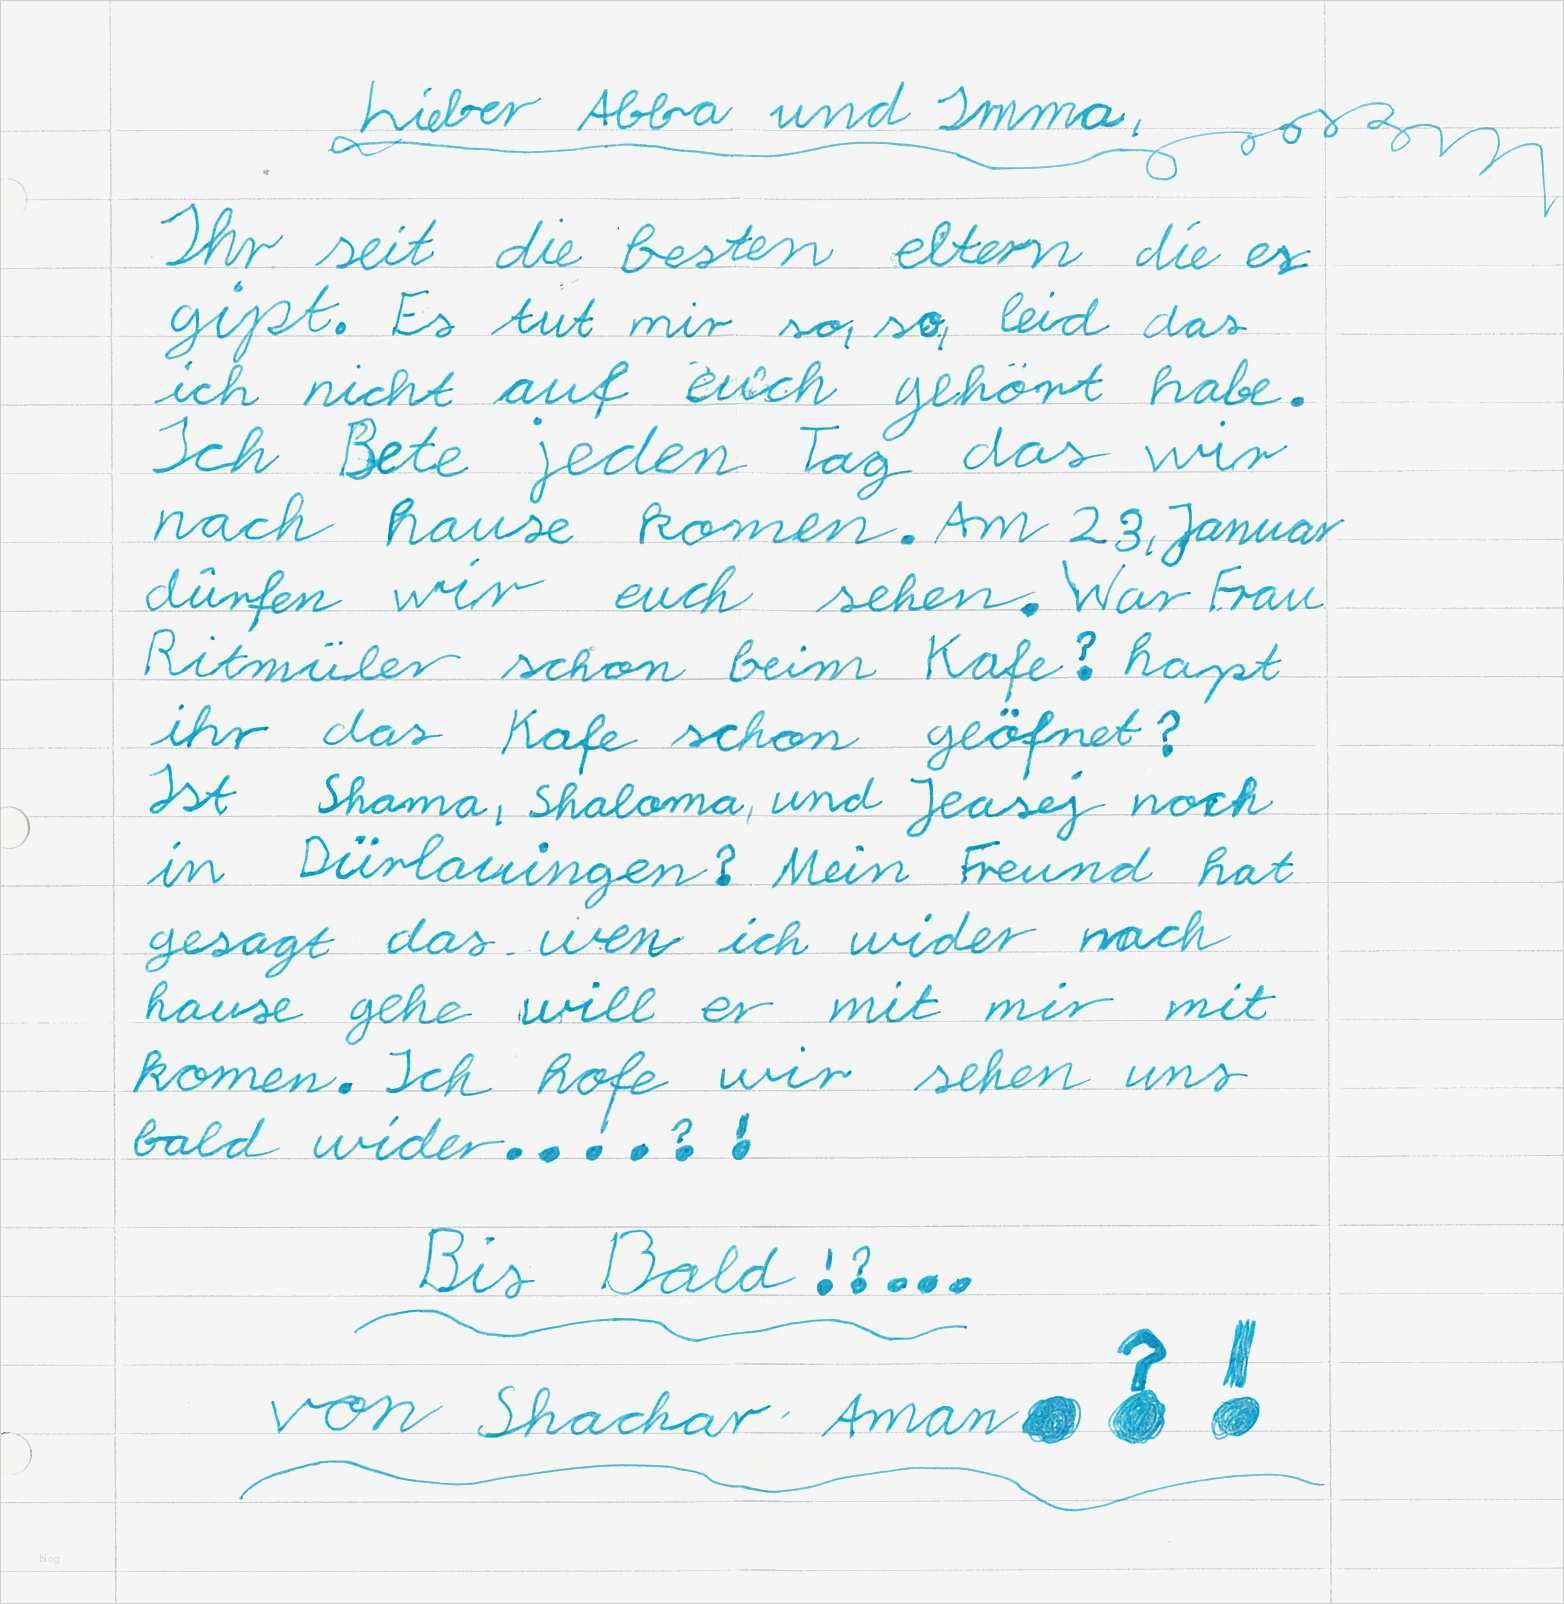 Lieber Abba und Imma,
Ihr seit die besten eltern die es
gipt. Es tut mir so, so, leid das
ich nicht auf euch gehört habe.
Ich Bete jeden Tag das wir
nach hause komen. Am 23, Januar
dürfen wir euch sehen. War Frau
Ritmüler schon beim Kafe? hapt
ihr das Kafe schon geöfnet?
Ist Shama, Shaloma, und Jeasej noch
in Dürlauingen? Mein Freund hat
gesagt das wen ich wider nach
hause gehe will er mit mir mit
komen. Ich hofe wir sehen uns
bald wider....?!
Bis Bald!?...
von Shachar Aman.?!
blog